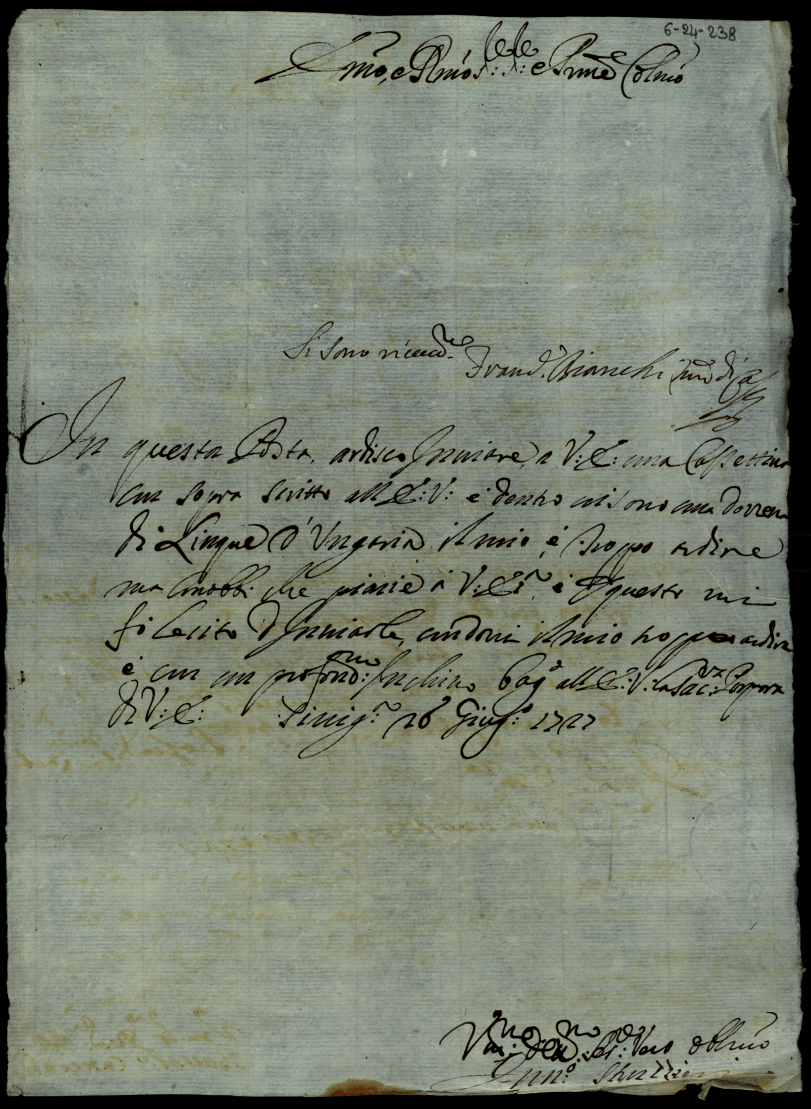 6-24-238
Emo, e Rmo Sre: Sre: e Pnne Colmo
Si sono ricevute
Franc.º Bianchi
In questa Posta, ardisco Inviare, a V: E: una Cassettina
cun sopra scritto all E: V: e dentro vi sono una dozena
di Lingue d'Ungaria il mio, è troppo ardire
ma che piacie a V: E: è questo mi
fà lecito d'Inviarle, il mio troppo ardire
è cun un profond:mo Inchino bag.º all E: V: la Sac:ra Porpora
di V: E: Sinig.ª 26 Giug.º 1727
Um:mo De:mo Ser:re Vero obblmo